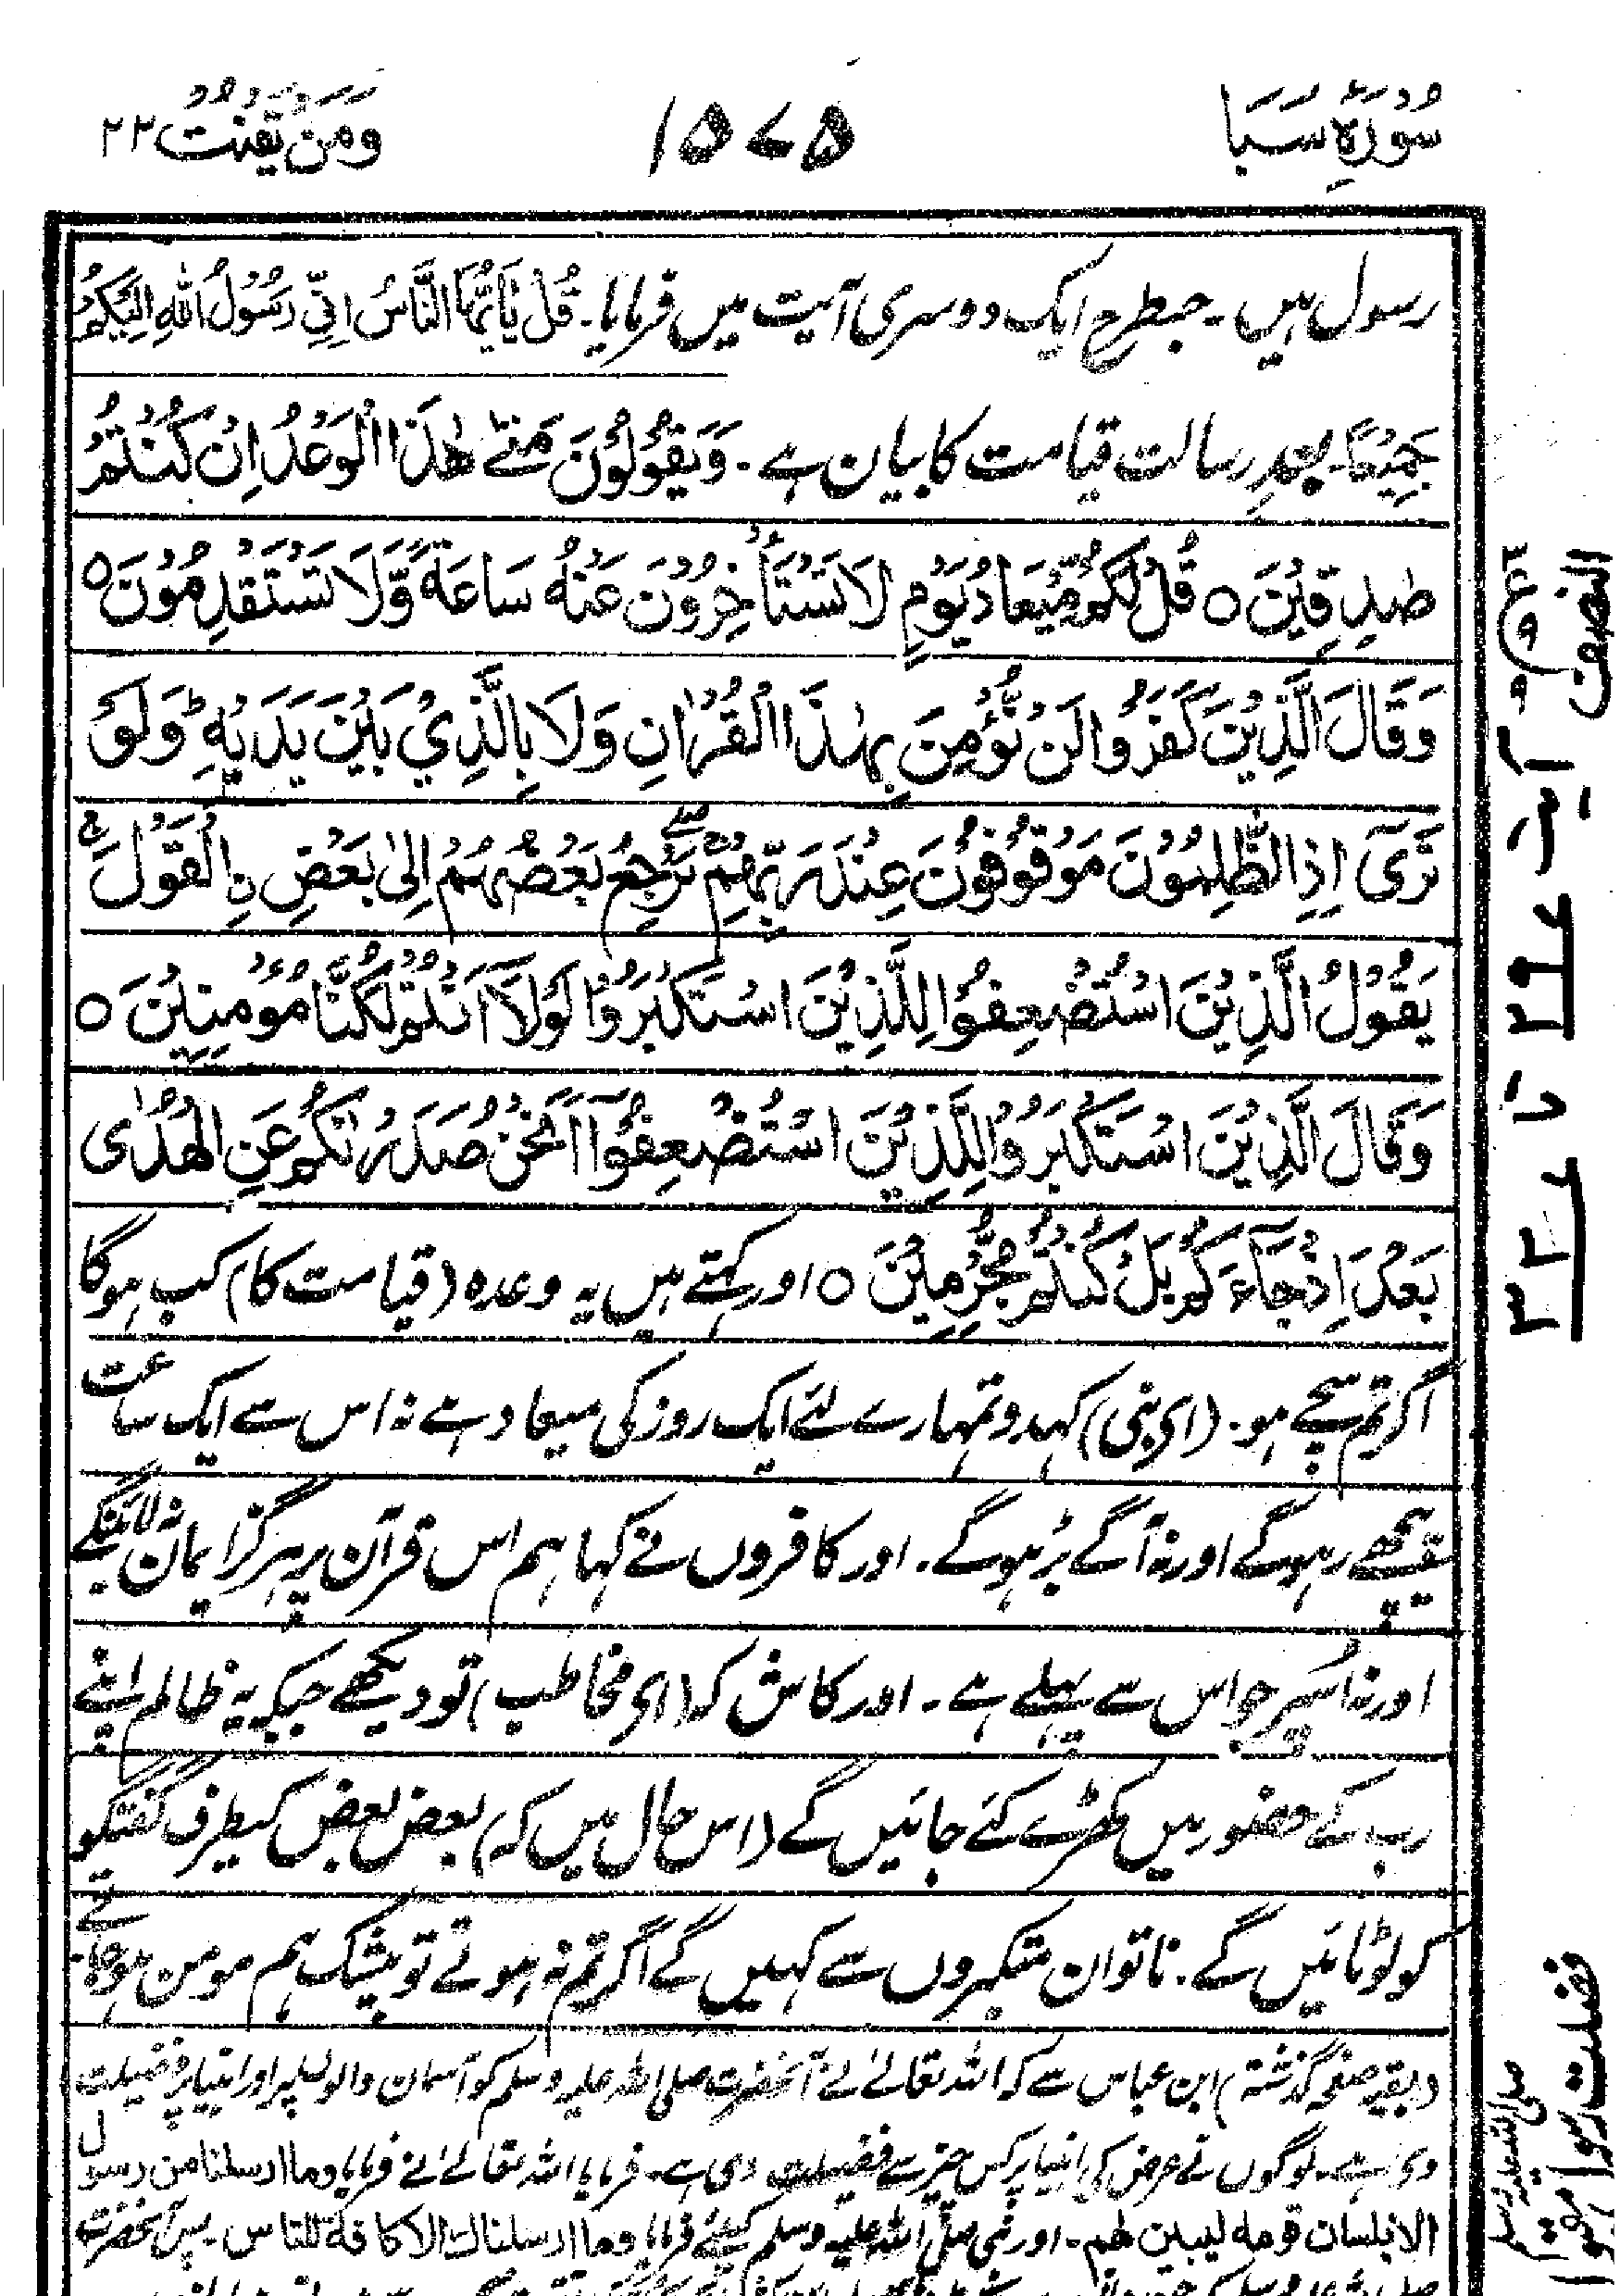 سُوْرَۃُ سَبَا
۱۵۷۵
وَمَنْ یَّقْنُتْ ۲۲
رسول ہیں۔ جسطرح ایک دوسری آیت میں فرمایا۔ قُلْ یٰاَیُّہَا النَّاسُ اِنِّیْ رَسُوْلُ اللہِ اِلَیْکُمْ
جَمِیْعًا۔ بعدِ رسالت قیامت کا بیان ہے۔ وَیَقُوْلُوْنَ مَتٰی ھٰذَا الْوَعْدُ اِنْ کُنْتُمْ
صٰدِقِیْنَ ○ قُلْ لَّکُمْ مِّیْعَادُ یَوْمٍ لَّا تَسْتَاْخِرُوْنَ عَنْہُ سَاعَۃً وَّلَا تَسْتَقْدِمُوْنَ ○
وَقَالَ الَّذِیْنَ کَفَرُوْا لَنْ نُّؤْمِنَ بِھٰذَا الْقُرْاٰنِ وَلَا بِالَّذِیْ بَیْنَ یَدَیْہِ ؕ وَلَوْ
تَرٰٓی اِذِ الظّٰلِمُوْنَ مَوْقُوْفُوْنَ عِنْدَ رَبِّہِمْ ۚ یَرْجِعُ بَعْضُہُمْ اِلٰی بَعْضِ ِۨ الْقَوْلَ ۚ
یَقُوْلُ الَّذِیْنَ اسْتُضْعِفُوْا لِلَّذِیْنَ اسْتَکْبَرُوْا لَوْلَآ اَنْتُمْ لَکُنَّا مُؤْمِنِیْنَ ○
وَقَالَ الَّذِیْنَ اسْتَکْبَرُوْا لِلَّذِیْنَ اسْتُضْعِفُوْٓا اَنَحْنُ صَدَدْنٰکُمْ عَنِ الْھُدٰی
بَعْدَ اِذْ جَآءَکُمْ بَلْ کُنْتُمْ مُّجْرِمِیْنَ ○ اور کہتے ہیں یہ وعدہ (قیامت کا) کب ہوگا
اگر تم سچے ہو۔ (ای نبی) کہدو تمہارے لئے ایک روز کی میعاد ہے نہ اس سے ایک ساعت
پیچھے رہوگے اور نہ آگے بڑہوگے۔ اور کافروں نے کہا ہم اس قرآن پر ہرگز ایمان نہ لائینگے
اور نہ اُسپر جو اس سے پہلے ہے۔ اور کاش کہ (ای مخاطب) تو دیکھے جبکہ یہ ظالم اپنے
رب کے حضور میں کھڑے کئے جائیں گے (اس حال میں کہ) بعض بعض کیطرف گفتگو
کو لوٹائیں گے۔ ناتوان متکبروں سے کہیں گے اگر تم نہ ہوتے تو بیشک ہم مومن ہوجاتے
(بقیہ صفحہ گذشتہ) ابن عباس سے کہ اللہ تعالےٰ نے آنحضرت صلی اللہ علیہ وسلم کو آسمان والونپر اور انبیا پر فضیلت
دی ہے۔ لوگوں نے عرض کی انبیا پر کس چیز سے فضیلت دی ہے۔ فرمایا اللہ تعالےٰ نے فرمایا وما ارسلنا من رسول
الا بلسان قومہ لیبین لھم۔ اور نبی صلی اللہ علیہ وسلم کیلئے فرمایا وما ارسلناک الا کافۃ للناس۔ پس آنحضرت
النصف